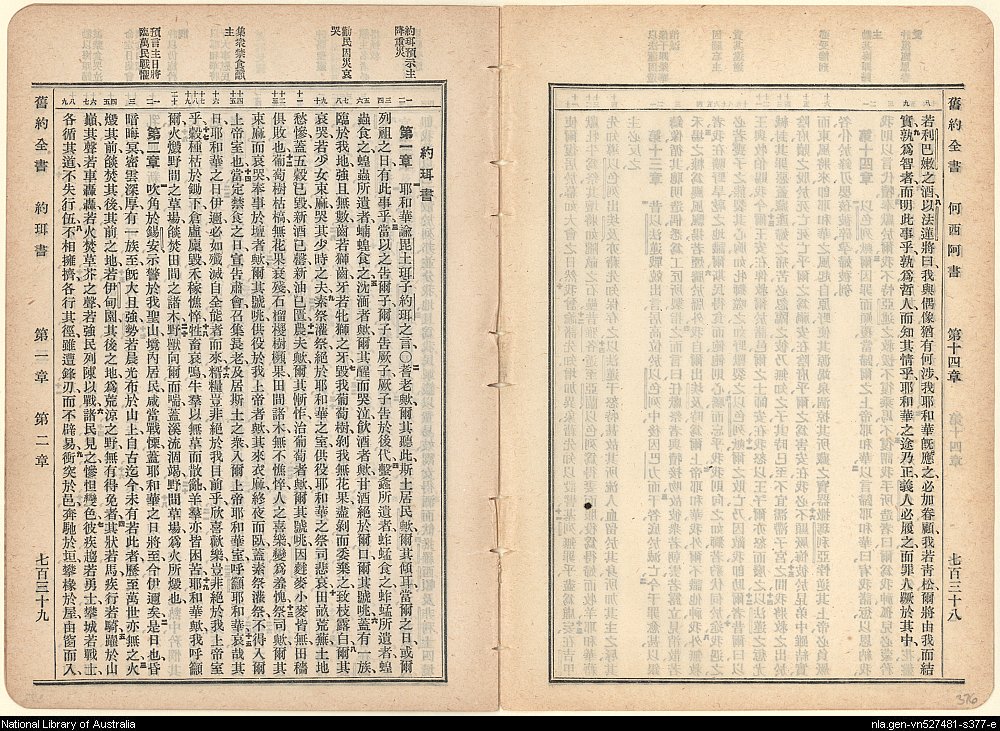 舊約全書 何西阿書 第十四章 七百三十八
若利巴嫩之酒以法蓮將曰我與偶像猶有何涉我耶和華既應之必加眷顧我若青松爾將由我而結
實孰為智者而明此事乎孰為哲人而知其情乎耶和華之途乃正義人必履之而罪人蹶於其中
約珥預示主
降重災
勸民因災哀
哭
集眾禁食籲
主
預言主日將
臨萬民戰懼
約珥書
第一章 耶和華諭毘土珥子約珥之言○耆老歟爾其聽此斯土居民歟爾其傾耳當爾之日或爾
列祖之日有此事乎當以之告爾子爾子告厥子厥子告於後代螽所遺者蚱蜢食之蚱蜢所遺者蝗
蟲食之蝗蟲所遺者蝻蝗食之沈湎者歟爾其醒而哭泣飲酒者歟甘酒絕於爾口爾其號咷蓋有一族
臨於我地強且無數齒若獅齒牙若牝獅之牙毀我葡萄樹剝我無花果盡剝而委棄之致枝露白爾其
哀哭若少女束麻哭其少時之夫素祭灌祭絕於耶和華之室供役耶和華之祭司悲哀田畝荒蕪土地
愁慘蓋五穀已毀新酒已罄新油已匱農夫歟爾其慚怍治葡萄者歟爾其號咷因麰麥小麥皆無田穡
俱敗也葡萄樹枯槁無花果衰殘石榴椶樹蘋果田間諸木無不憔悴人之喜樂變為羞愧祭司歟爾其
束麻而哀哭奉事於壇者歟爾其號咷供役於我上帝者歟其來衣麻終夜而臥蓋素祭灌祭不得入爾
上帝室也當定禁食之日宣告肅會召集長老及居斯土之眾入爾上帝耶和華室呼籲耶和華哀哉其
日耶和華之日伊邇必如殲滅自全能者而來糈糧豈非絕於我目前乎欣喜歡樂豈非絕於我上帝室
乎穀種枯於鋤下倉廬廩毀禾稼憔悴牲畜哀鳴牛羣以無草而散亂羊羣亦皆困苦耶和華歟我呼籲
爾火燬野間之草場燄焚田間之諸木野獸向爾而喘蓋溪流涸竭野間草場為火所燬也
第二章 吹角於錫安示警於我聖山境內居民咸當戰慄蓋耶和華之日將至今伊邇矣是日也昏
暗晦冥密雲深厚有一族至既大且強勢若晨光布於山上自古迄今未有若此者歷至萬世亦無之火
燬其前燄焚其後其前之地若伊甸園其後之地為荒涼之野無有得免者其狀若馬疾行若騎躍於山
巔其聲若車轟轟若火焚草芥之聲若強民列陳以戰諸民見之慘怛變色彼疾趨若勇士攀城若戰士
各循其道不失行伍不相擁擠各行其徑雖遭鋒刃而不辟易衝突於邑奔馳於垣攀椽於屋由窗而入
舊約全書 約珥書 第一章 第二章 七百三十九
376
National Library of Australia
nla.gen-vn527481-s377-e